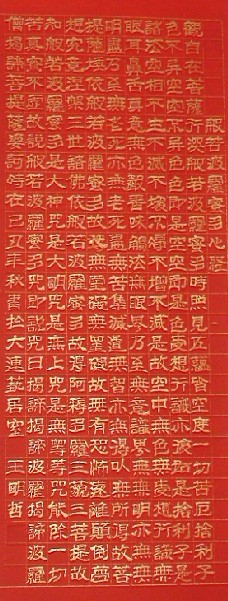 般若波羅蜜多心經
觀自在菩薩行深般若波羅蜜多時照見五蘊皆空度一切苦厄捨利子
色不异空空不异色色即是空空即是色受想行識亦復如是捨利子是
諸法空相不生不滅不垢不淨不增不減是故空中無色無受想行識無
眼耳鼻舌身意無色聲香味觸法無眼界乃至無意識界無無明亦無無
明盡乃至無老死亦無老死盡無苦集滅道無智亦無得以無所得故菩
提薩埵依般若波羅蜜多故心無罣礙無罣礙故無有恐怖遠離顛倒夢
想究竟涅槃三世諸佛依般若波羅蜜多故得阿耨多羅三藐三菩提故
知般若波羅蜜多是大神咒是大明咒是無上咒是無等等咒能除一切
苦真實不虛故說般若波羅蜜多咒即說咒曰揭諦揭諦波羅揭諦波羅
僧揭諦菩提薩婆訶時在己丑年秋書於大連居室王明哲